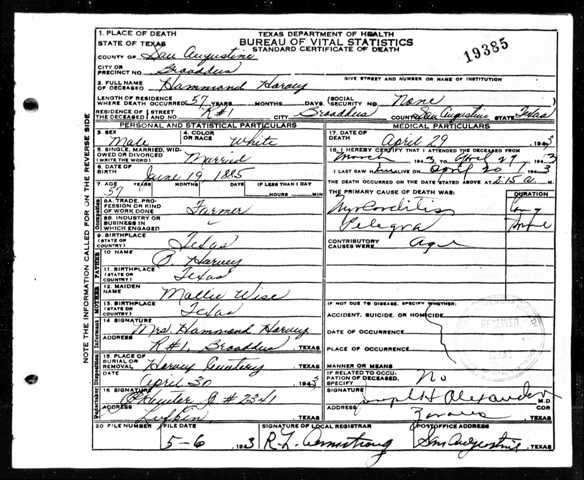 1. PLACE OF DEATH
STATE OF TEXAS
TEXAS DEPARTMENT OF HEALTH
BUREAU OF VITAL STATISTICS
STANDARD CERTIFICATE OF DEATH
19385
COUNTY OF San Augustine
CITY OR PRECINCT NO. Broaddus
GIVE STREET AND NUMBER OR NAME OF INSTITUTION
2. FULL NAME OF DECEASED Hammond Harvey
LENGTH OF RESIDENCE WHERE DEATH OCCURRED 57 YEARS MONTHS DAYS SOCIAL SECURITY NO. None
RESIDENCE OF THE DECEASED STREET AND NO. R#1 CITY Broaddus COUNTY San Augustine STATE Texas
PERSONAL AND STATISTICAL PARTICULARS
3. SEX Male
4. COLOR OR RACE White
5. SINGLE, MARRIED, WIDOWED OR DIVORCED (WRITE THE WORD) Married
6. DATE OF BIRTH June 19, 1885
7. AGE 57 YEARS MONTHS DAYS IF LESS THAN 1 DAY HOURS MIN.
8A. TRADE, PROFESSION OR KIND OF WORK DONE Farmer
8B. INDUSTRY OR BUSINESS IN WHICH ENGAGED
9. BIRTHPLACE (STATE OR COUNTRY) Texas
FATHER
10. NAME Harvey
11. BIRTHPLACE (STATE OR COUNTRY) Texas
MOTHER
12. MAIDEN NAME Mollie Wise
13. BIRTHPLACE (STATE OR COUNTRY) Texas
14. SIGNATURE Mrs. Hammond Harvey
ADDRESS R#1, Broaddus, TEXAS
15. PLACE OF BURIAL OR REMOVAL Harvey Cemetery, TEXAS
DATE April 30 1943
16. SIGNATURE # 2341
ADDRESS Lufkin TEXAS
MEDICAL PARTICULARS
17. DATE OF DEATH April 29 1943
18. I HEREBY CERTIFY THAT I ATTENDED THE DECEASED FROM
March 1943 TO April 29, 1943
I LAST SAW ALIVE ON April 20 1943
THE DEATH OCCURRED ON THE DATE STATED ABOVE AT 2:15 a. M.
THE PRIMARY CAUSE OF DEATH WAS: DURATION
Myocarditis
Pelegra
CONTRIBUTORY CAUSES WERE: Age
IF NOT DUE TO DISEASE, SPECIFY WHETHER:
ACCIDENT, SUICIDE, OR HOMICIDE
DATE OF OCCURRENCE
PLACE OF OCCURRENCE
MANNER OR MEANS
IF RELATED TO OCCUPATION OF DECEASED, SPECIFY No
SIGNATURE Joseph H Alexander M.D.
ADDRESS COR
TEXAS
20 FILE NUMBER
FILE DATE 5-6 1943
SIGNATURE OF LOCAL REGISTRAR R. L. Armstrong
POSTOFFICE ADDRESS San Augustine, TEXAS
NOTE THE INFORMATION CALLED FOR ON THE REVERSE SIDE